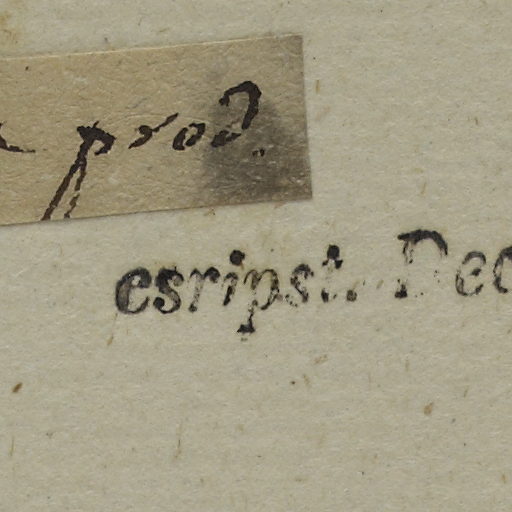 prod.
esripst. Dec